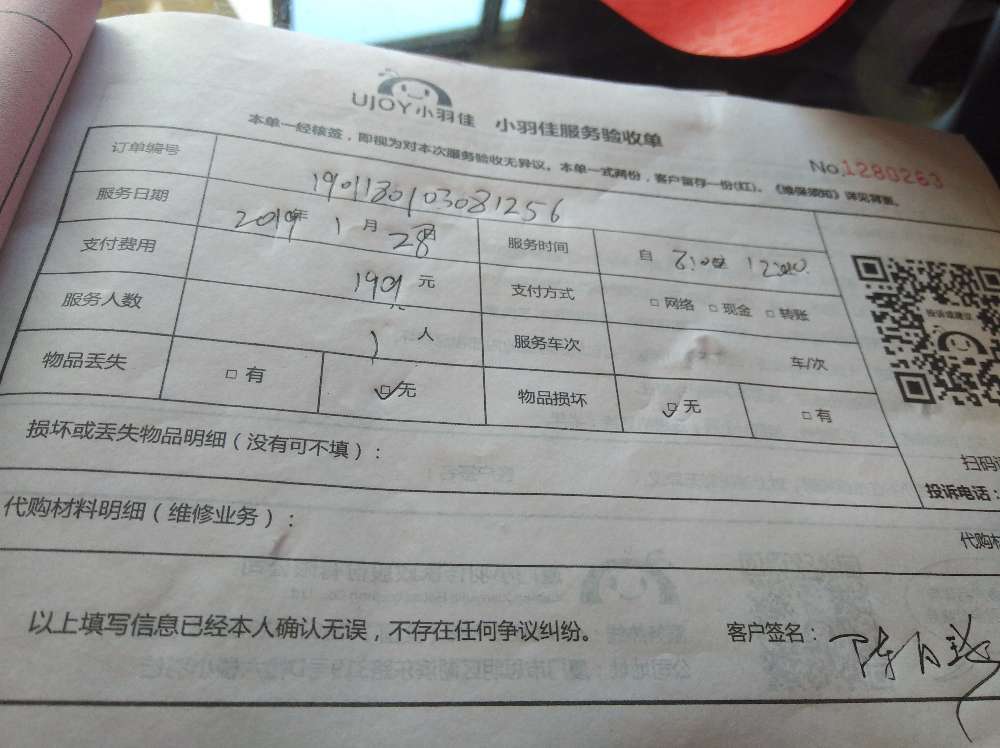 UJOY小羽佳 小羽佳服务验收单
本单一经核签，即视为对本次服务验收无异议。本单一式两份，客户留存一份(红)。《维保须知》详见背面。
No.1280263
订单编号 190118010308​1256
服务日期 2019年 1月 28日 服务时间 自 8:00至 12:00
支付费用 190元 支付方式 □网络 □现金 □转账
服务人数 1人 服务车次 车/次
物品丢失 □有 ☑无 物品损坏 ☑无 □有
投诉或建议
损坏或丢失物品明细（没有可不填）：
扫码
投诉电话：
代购材料明细（维修业务）：
代购材
以上填写信息已经本人确认无误，不存在任何争议纠纷。 客户签名：陈月